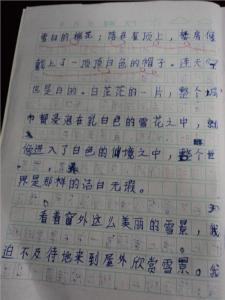 雪白的棉花；落在屋顶上，替房屋
戴上了一顶顶白色的帽子。连天
也是白的。白茫茫的一片，整个城
市都浸泡在乳白色的雪花之中，
进入了白色的仙境之中，整个世
界是那样的洁白无瑕。
看着窗外这么美丽的雪景，我
迫不及待地来到屋外欣赏雪景。我